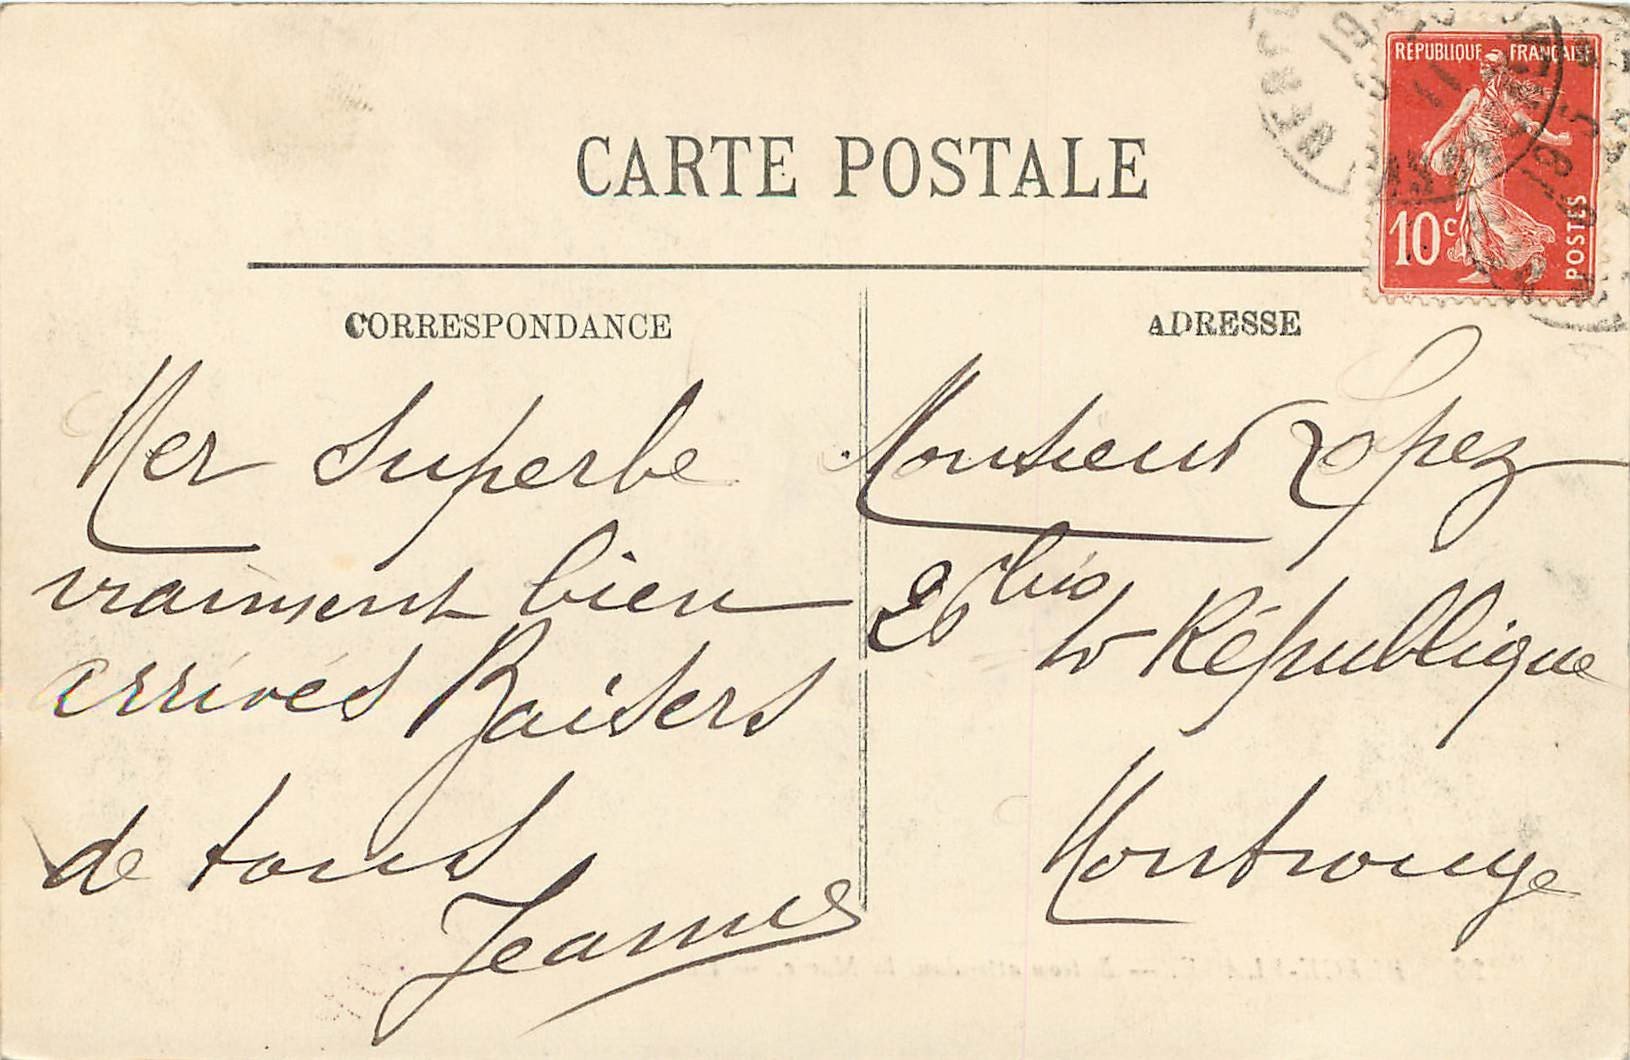 CARTE POSTALE
RÉPUBLIQUE FRANÇAISE
10c
POSTES
CORRESPONDANCE
Mer superbe
vraiment bien
arrivés Baisers
de tous
Jeanne
ADRESSE
Monsieur Lopez
26 bis
République
Montrouge